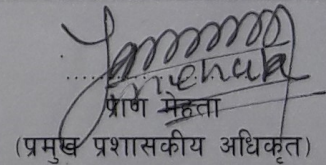 प्राण मेहता
(प्रमुख प्रशासकीय अधिकृत)